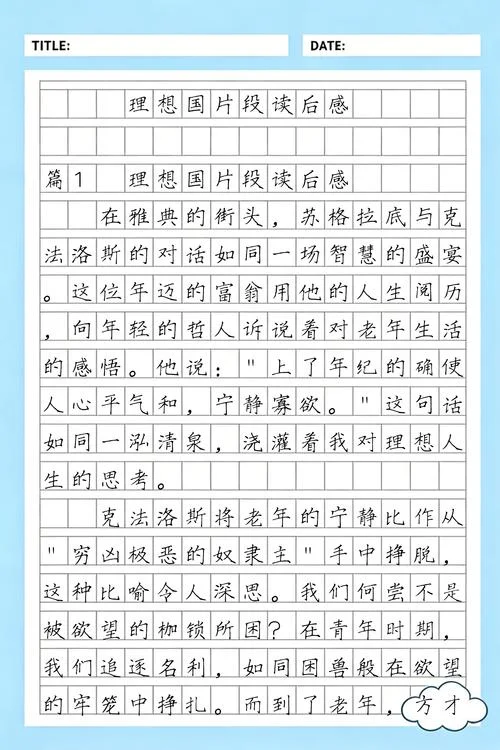 TITLE: DATE:
理想国片段读后感
篇1 理想国片段读后感
在雅典的街头，苏格拉底与克
法洛斯的对话如同一场智慧的盛宴
。这位年迈的富翁用他的人生阅历
，向年轻的哲人诉说着对老年生活
的感悟。他说："上了年纪的确使
人心平气和，宁静寡欲。"这句话
如同一泓清泉，浇灌着我对理想人
生的思考。
克法洛斯将老年的宁静比作从
"穷凶极恶的奴隶主"手中挣脱，
这种比喻令人深思。我们何尝不是
被欲望的枷锁所困？在青年时期，
我们追逐名利，如同困兽般在欲望
的牢笼中挣扎。而到了老年，方才